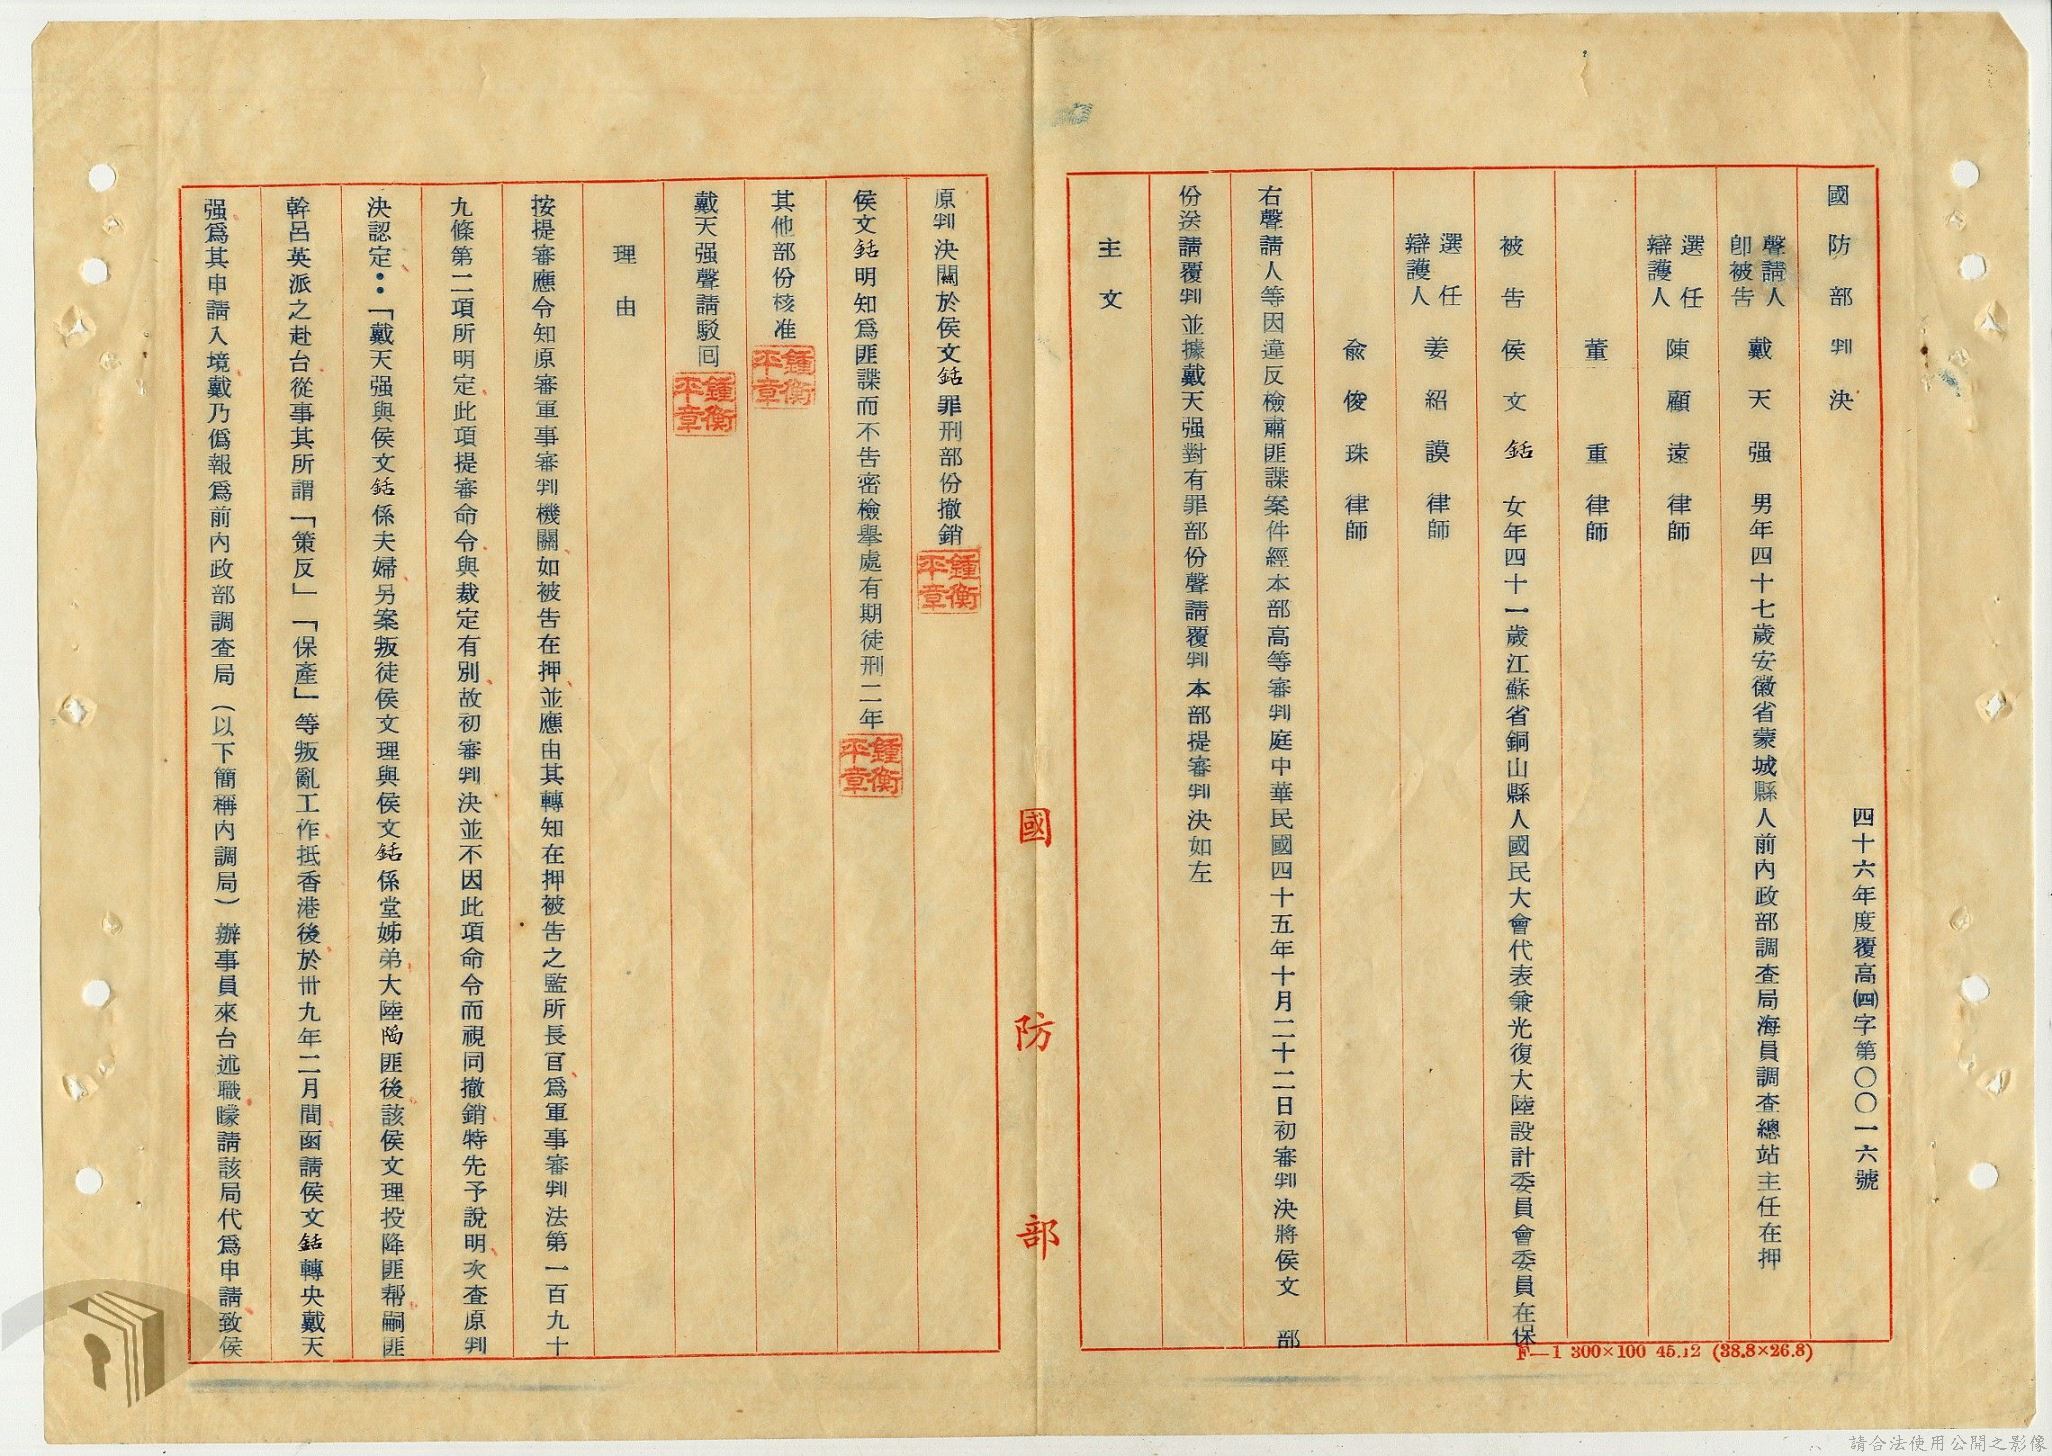 國防部判決
四十六年度覆高(四)字第〇〇一六號
聲請人即被告 戴天强 男年四十七歲安徽省蒙城縣人前內政部調查局海員調查總站主任在押
選任辯護人 陳顧遠 律師
董重 律師
被告 侯文銛 女年四十一歲江蘇省銅山縣人國民大會代表兼光復大陸設計委員會委員在保
選任辯護人 姜紹謨 律師
兪俊珠 律師
右聲請人等因違反檢肅匪諜案件經本部高等審判庭中華民國四十五年十月二十二日初審判決將侯文 部
份送請覆判並據戴天强對有罪部份聲請覆判本部提審判決如左
主文
原判決關於侯文銛罪刑部份撤銷
侯文銛明知爲匪諜而不告密檢舉處有期徒刑二年
其他部份核准
戴天强聲請駁囘
理由
按提審應令知原審軍事審判機關如被告在押並應由其轉知在押被告之監所長官爲軍事審判法第一百九十
九條第二項所明定此項提審命令與裁定有別故初審判決並不因此項命令而視同撤銷特先予說明次查原判
決認定：「戴天强與侯文銛係夫婦另案叛徒侯文理與侯文銛係堂姊弟大陸陷匪後該侯文理投降匪帮嗣匪
幹呂英派之赴台從事其所謂「策反」「保產」等叛亂工作抵香港後於卅九年二月間函請侯文銛轉央戴天
强爲其申請入境戴乃僞報爲前內政部調查局(以下簡稱內調局)辦事員來台述職矇請該局代爲申請致侯
國防部
F—1 300×100 45.12 (38.8×26.8)
鍾衡平章
鍾衡平章
鍾衡平章
鍾衡平章
請合法使用公開之影像